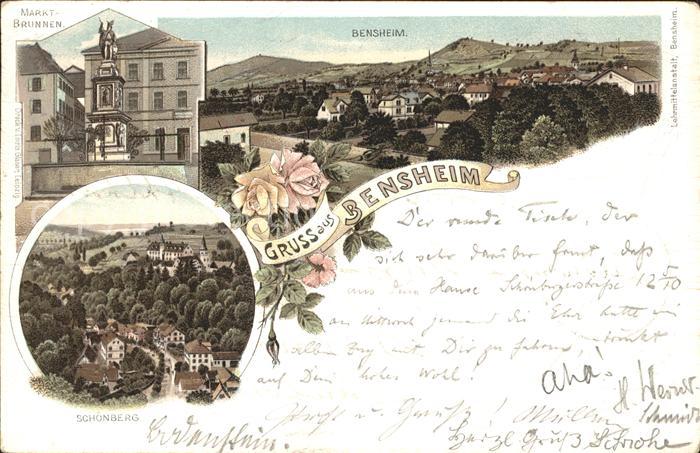 MARKT-
BRUNNEN.
BENSHEIM.
Lehrmittelanstalt, Bensheim.
GRUSS aus BENSHEIM
SCHÖNBERG
Der runde Tisch, der
sich sehr darüber freut, daß
aus dem Hause Schönbergerstraße 12
am Mittwoch jemand die Ehre hatte im
selben Zug mit Dir zu fahren, trinkt
auf Dein hohes Wohl!
aha!
H. Werner
Schmidt
Prost u. Gruß! Müller
Bodenstein.
Herzl Gruß Schrohe